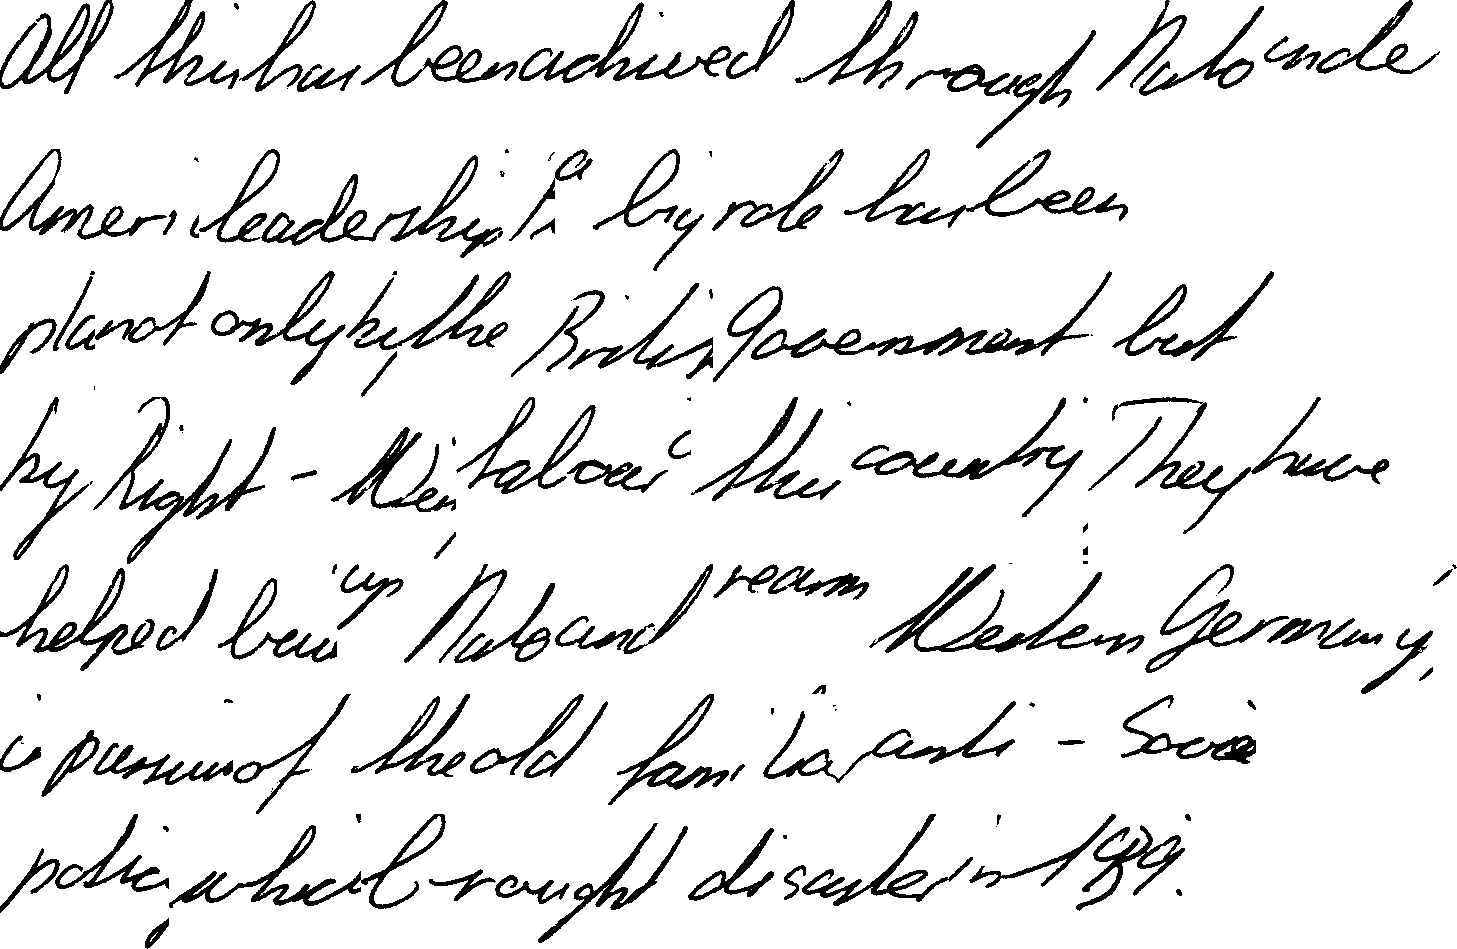 All this has been achived through Nato unde
Ameri leadership, a big role has been
pla not only by the British Government but
by Right - Win Labour in this country. They have
helped buil up Nato and rearm Western Germany,
in pursui of the old familiar anti - Sovie
policy which brought disaster in 1939.